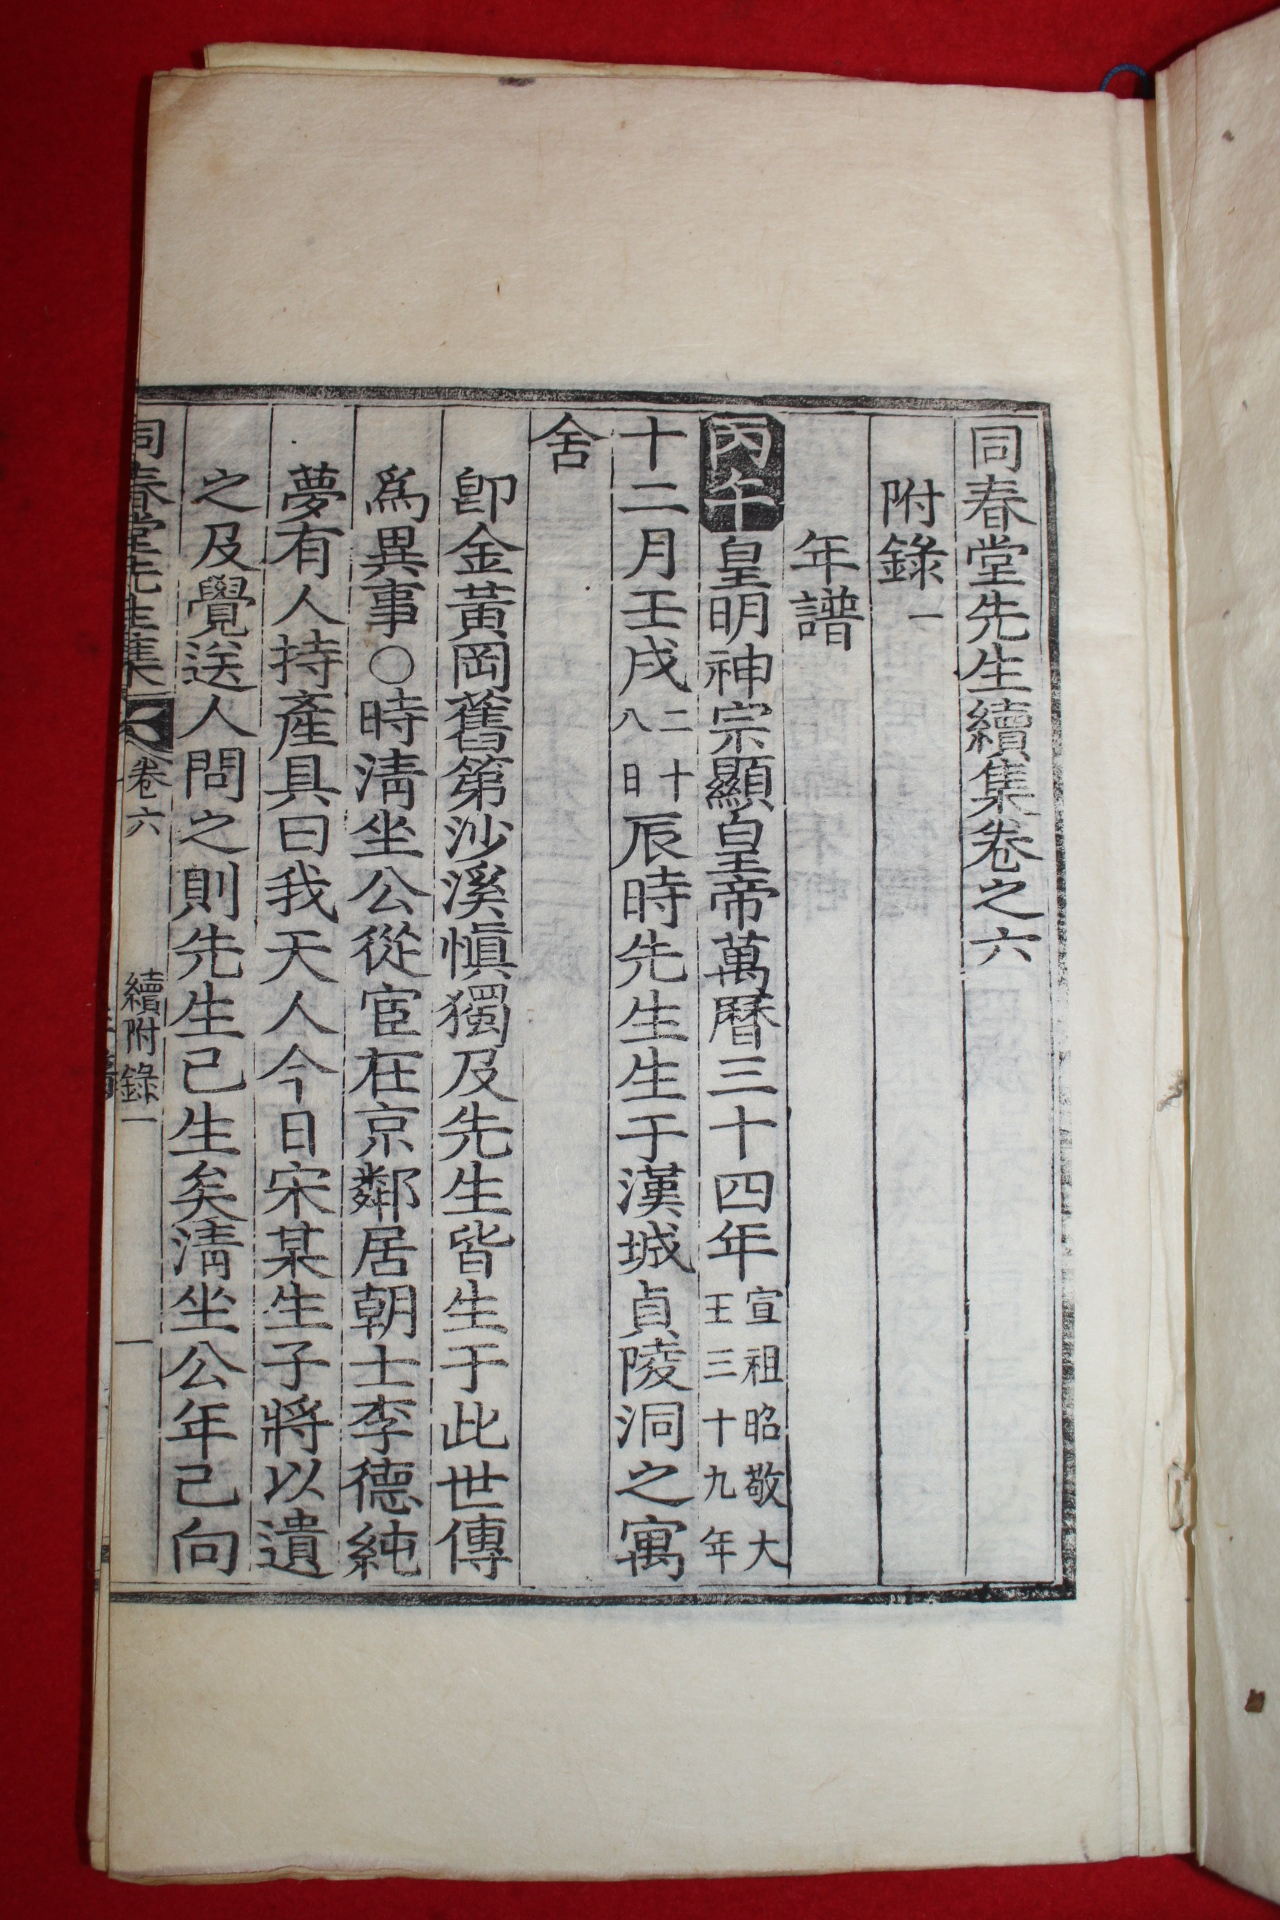 同春堂先生續集卷之六
附錄一
年譜
丙午皇明神宗顯皇帝萬曆三十四年宣祖昭敬大王三十九年
十二月壬戌二十八日辰時先生生于漢城貞陵洞之寓
舍
卽金黃岡舊第沙溪愼獨及先生皆生于此世傳
爲異事○時淸坐公從宦在京鄰居朝士李德純
夢有人持產具曰我天人今日宋某生子將以遺
之及覺送人問之則先生已生矣淸坐公年已向
同春堂先生集 卷六 續附錄一 一